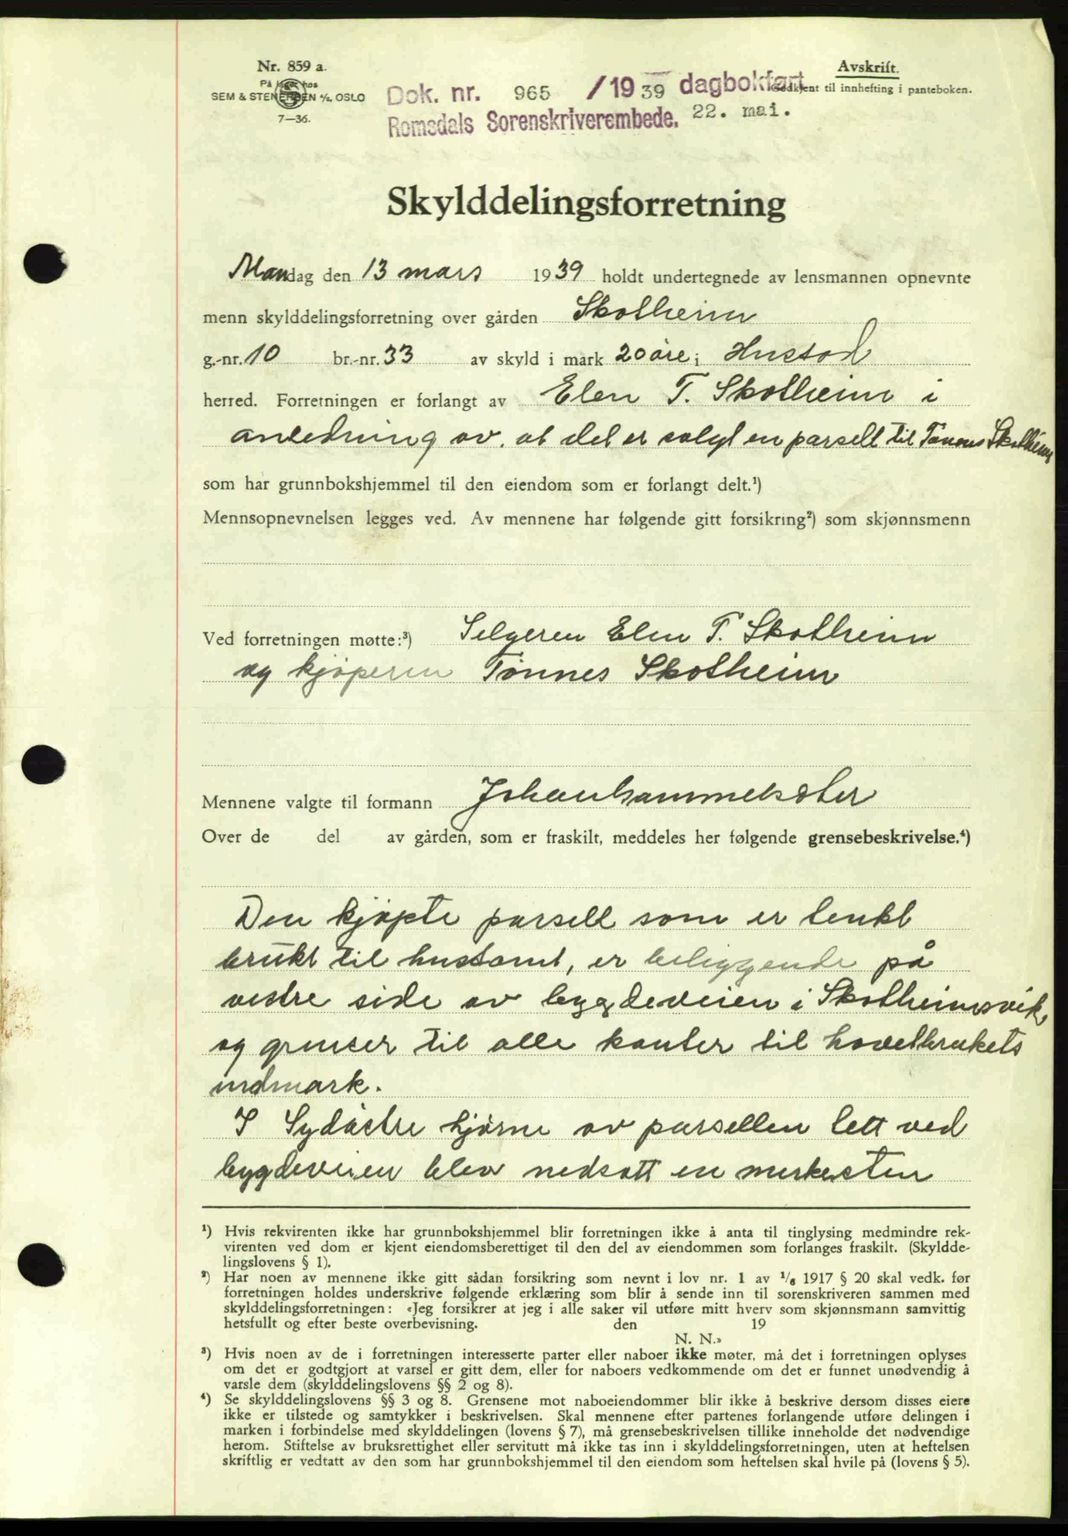 Nr. 859 a.
På lager hos
SEM & STENERSEN A/S. OSLO
7—36.
Avskrift.
Godkjent til innhefting i panteboken.
Dok. nr. 965 /1939 dagbokført
Romsdals Sorenskriverembede. 22. mai.
Skylddelingsforretning
Mandag den 13 mars 1939 holdt undertegnede av lensmannen opnevnte
menn skylddelingsforretning over gården Skotheim
g.-nr. 10 br.-nr. 33 av skyld i mark 20 øre i Hustad
herred. Forretningen er forlangt av Elen T. Skotheim i
anledning av. at det er solgt en parsell til Tønnes Skotheim
som har grunnbokshjemmel til den eiendom som er forlangt delt.¹)
Mennsopnevnelsen legges ved. Av mennene har følgende gitt forsikring²) som skjønnsmenn
Ved forretningen møtte:³) Selgeren Elen T. Skotheim
og kjøperen Tønnes Skotheim
Mennene valgte til formann Johan Hammersæter
Over de del av gården, som er fraskilt, meddeles her følgende grensebeskrivelse.⁴)
Den kjøpte parsell som er tenkt
brukt til hustomt, er beliggende på
vestre side av bygdeveien i Skotheimsvik
og grenser til alle kanter til hovedbrukets
indmark.
I Sydøstre hjørne av parsellen tett ved
bygdeveien blev nedsatt en merkesten
¹) Hvis rekvirenten ikke har grunnbokshjemmel blir forretningen ikke å anta til tinglysing medmindre rek-
virenten ved dom er kjent eiendomsberettiget til den del av eiendommen som forlanges fraskilt. (Skyldde-
lingslovens § 1).
²) Har noen av mennene ikke gitt sådan forsikring som nevnt i lov nr. 1 av 1/6 1917 § 20 skal vedk. før
forretningen holdes underskrive følgende erklæring som blir å sende inn til sorenskriveren sammen med
skylddelingsforretningen: «Jeg forsikrer at jeg i alle saker vil utføre mitt hverv som skjønnsmann samvittig
hetsfullt og efter beste overbevisning. den 19
N. N.»
³) Hvis noen av de i forretningen interesserte parter eller naboer ikke møter, må det i forretningen oplyses
om det er godtgjort at varsel er gitt dem, eller for naboers vedkommende om det er funnet unødvendig å
varsle dem (skylddelingslovens §§ 2 og 8).
⁴) Se skylddelingslovens §§ 3 og 8. Grensene mot naboeiendommer blir ikke å beskrive dersom disses eiere
ikke er tilstede og samtykker i beskrivelsen. Skal mennene efter partenes forlangende utføre delingen i
marken i forbindelse med skylddelingen (lovens § 7), må grensebeskrivelsen tillike inneholde det nødvendige
herom. Stiftelse av bruksrettighet eller servitutt må ikke tas inn i skylddelingsforretningen, uten at heftelsen
skriftlig er vedtatt av den som har grunnbokshjemmel til den eiendom som heftelsen skal hvile på (lovens § 5).